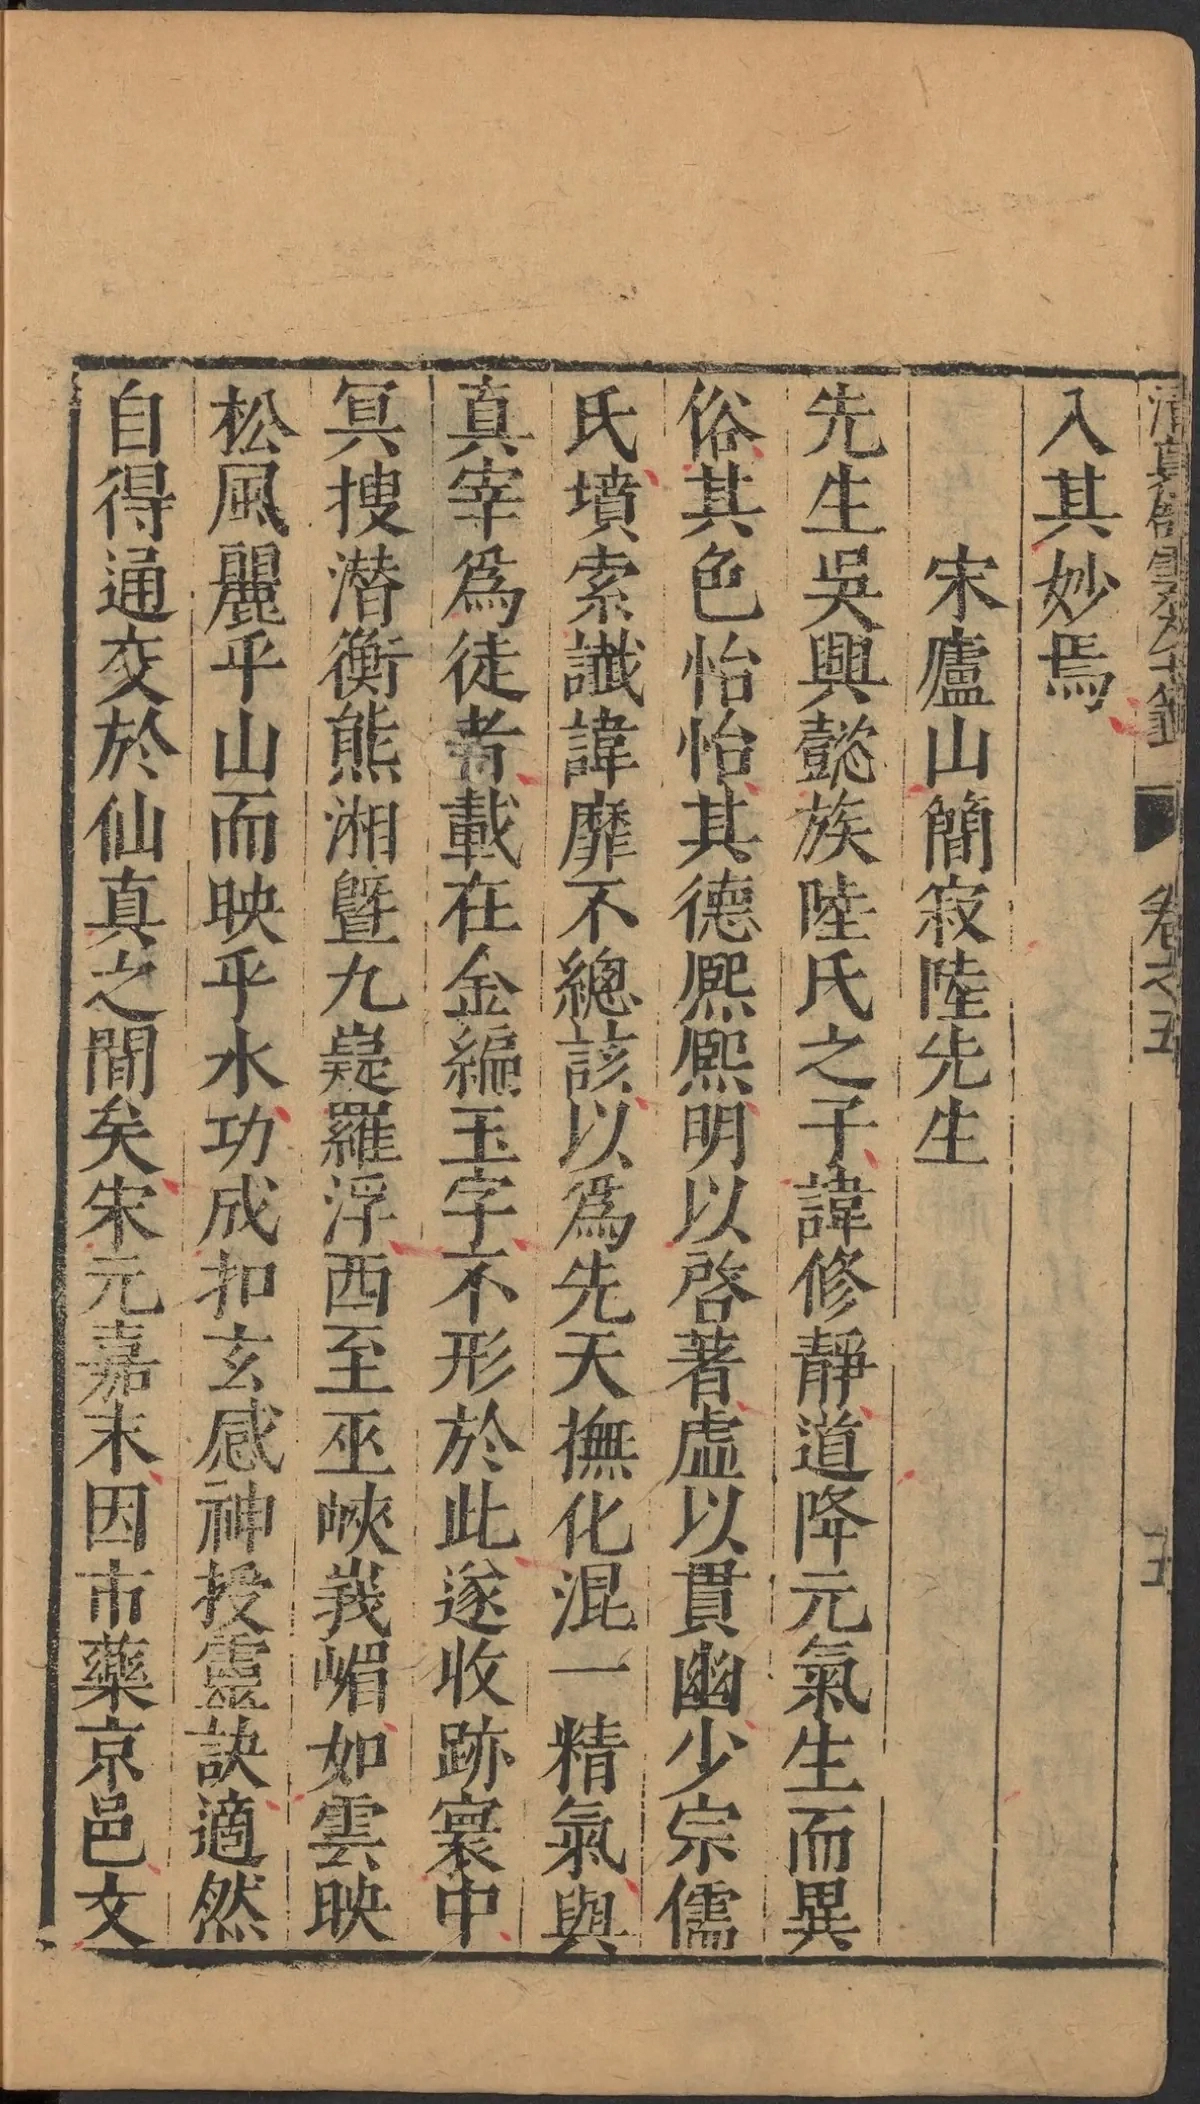 卷之五
入其妙焉
宋廬山簡寂陸先生
先生吳興懿族陸氏之子諱修靜道降元氣生而異
俗其色怡怡其德熈熈明以啓著虛以貫幽少宗儒
氏墳索讖諱靡不總該以爲先天撫化混一精氣與
真宰爲徒者載在金編玉字不形於此遂收跡寰中
冥搜潜衡熊湘曁九嶷羅浮西至巫峽峩嵋如雲映
松風麗乎山而映乎水功成扣玄感神授靈訣適然
自得通交於仙真之間矣宋元嘉末因市藥京邑文